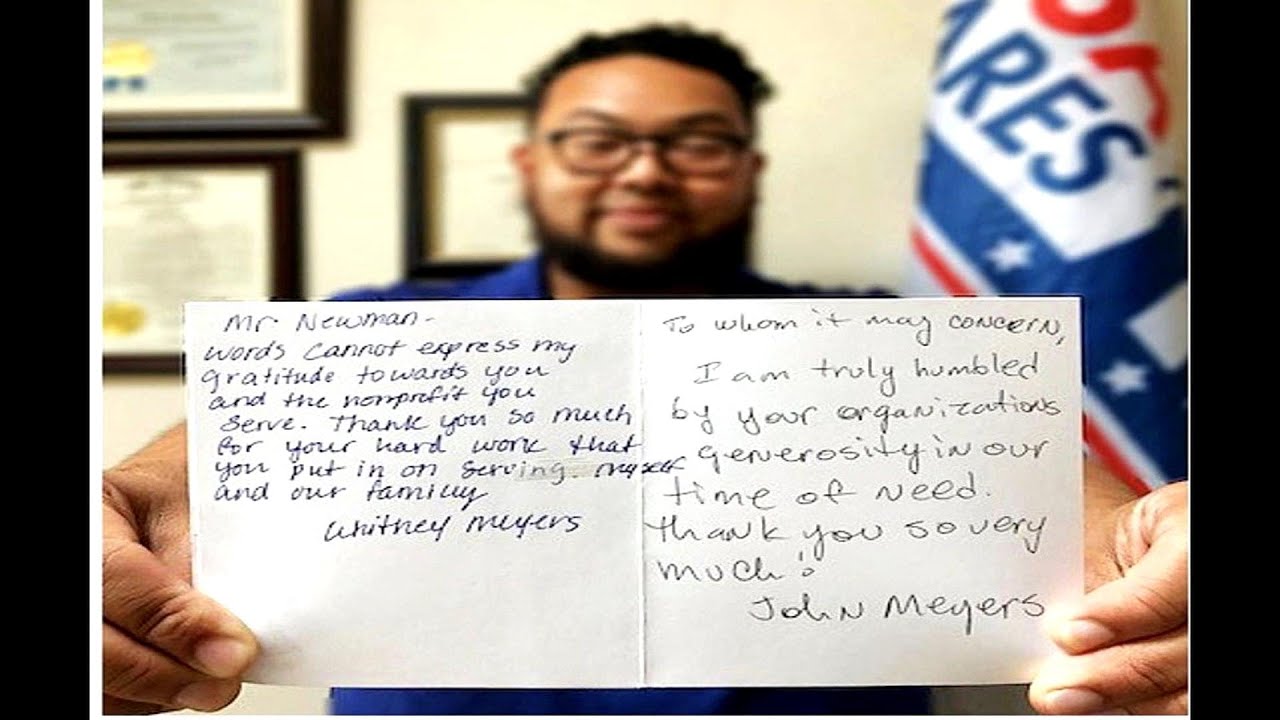 Mr. Newman-
words cannot express my
gratitude towards you
and the nonprofit you
serve. Thank you so much
for your hard work that
you put in on serving myself
and our family
Whitney Meyers
To whom it may concern,
I am truly humbled
by your organizations
generosity in our
time of need.
Thank you so very
much!
John Meyers
ARES